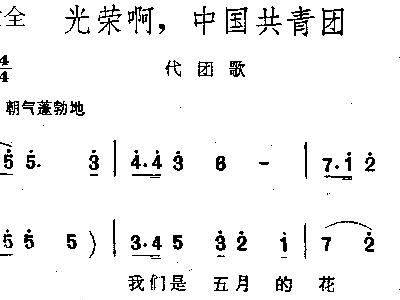 全 光荣啊，中国共青团
4/4 代团歌
朝气蓬勃地
5 5. 3 | 4·4 3 6 - | 7·1 2
5 5 5 ) | 3·4 5 3 2 1 | 7 2
我们是 五月 的 花